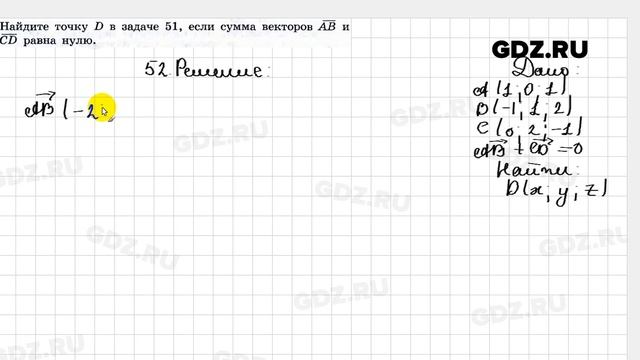 Найдите точку D в задаче 51, если сумма векторов AB и
CD равна нулю.
GDZ.RU
52. Решение:
Дано:
A(1; 0; 1)
B(-1; 1; 2)
C(0; 2; -1)
AB + CD = 0
Найти:
D(x; y; z)
AB(-2;
GDZ.RU
GDZ.RU
GDZ.RU
GDZ.RU
GDZ.RU
GDZ.RU